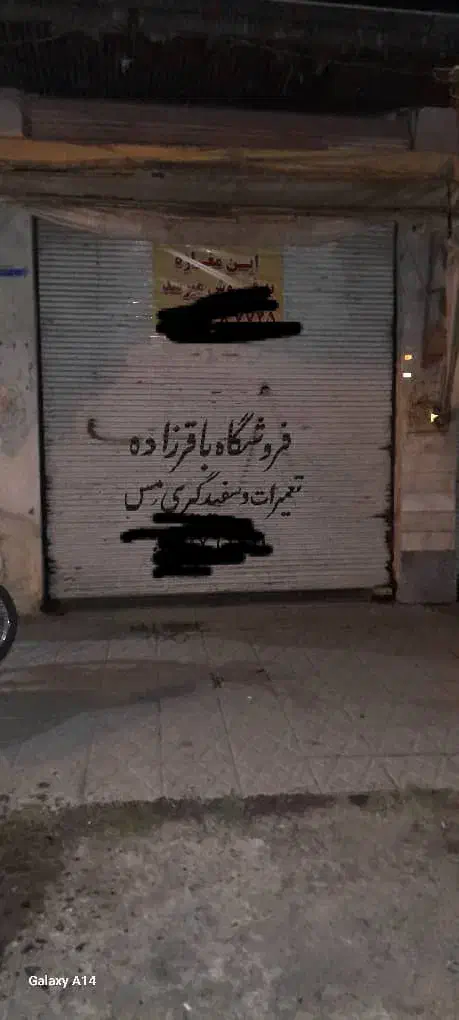 این مغازه
بفروش میرسد
فروشگاه باقرزاده
تعمیرات و سفیدگری مس
Galaxy A14